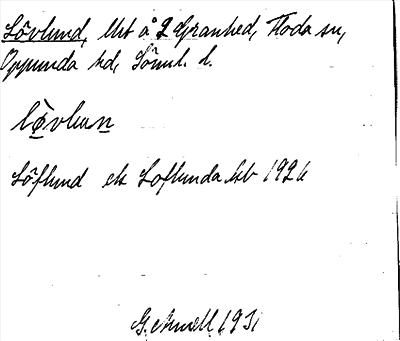 Lövlund, lht å 2 Granhed, Floda sn,
Oppunda hd, Söml. l.
lø̀vlun
Löflund el. Loflunda kb 1926
G. 1931